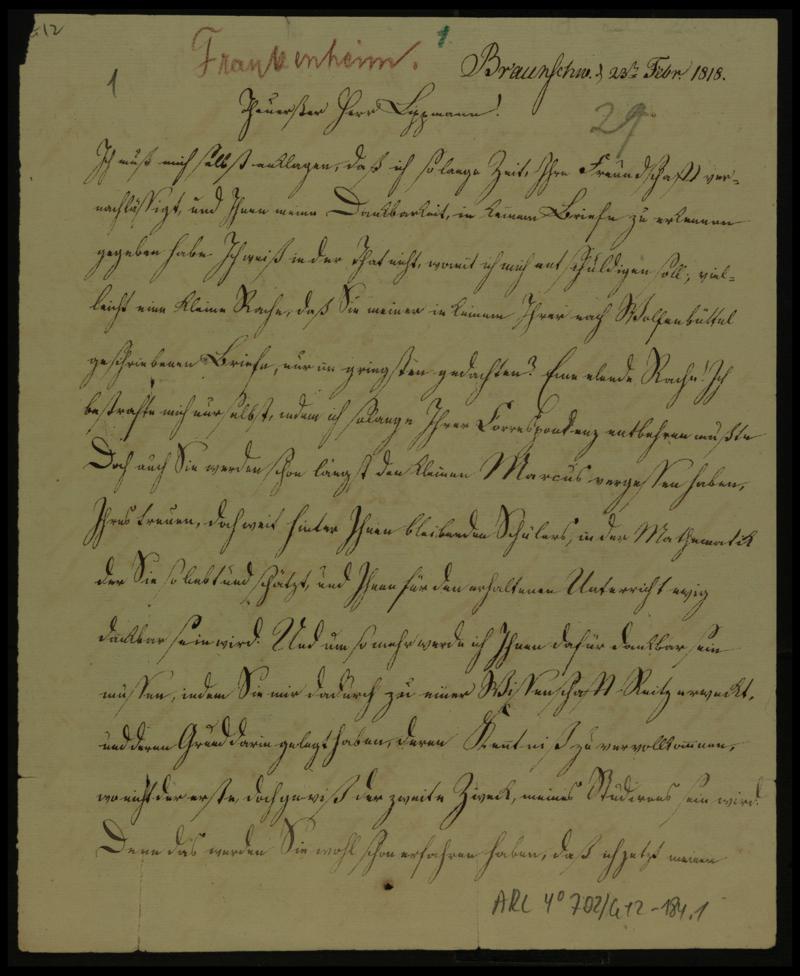 G 12
Frankenheim.
1
1
Braunschw. d 23t Febr 1818.
Theuerster Herr Lippmann!
29
Ich muß mich selbst anklagen, daß ich so lange Zeit, Ihre Freundschaft ver=
nachlässigt, und Ihnen meine Dankbarkeit, in keinem Briefe zu erkennen
gegeben habe Ich weiß in der That nicht, womit ich mich entschuldigen soll; viel=
leicht eine kleine Rache, daß Sie meiner in keinem Ihrer nach Wolfenbüttel
geschriebenen Briefe, nur im gringsten gedachten? Eine elende Rache! Ich
bestrafte mich nur selbst, indem ich solange Ihrer Correspondenz entbehren mußte
Doch auch Sie werden schon längst den kleinen Marcus vergessen haben,
Ihres treuen, doch weit hinter Ihnen bleibenden Schülers, in der Mathematik
der Sie so liebt und schätzt, und Ihnen für den erhaltenen Unterricht ewig
dankbar sein wird. Und um so mehr werde ich Ihnen dafür dankbar sein
müssen, indem Sie mir dadurch zu einer Wissenschaft Reitz erweckt,
und deren Grund darin gelegt haben, deren Kentniß zu vervollkommnen,
wo nicht der erste, doch gewiß der zweite Zweck, meines Studirens sein wird.
Denn das werden Sie wohl schon erfahren haben, daß ich jetzt meinen
ARC 4° 702/G12-184.1